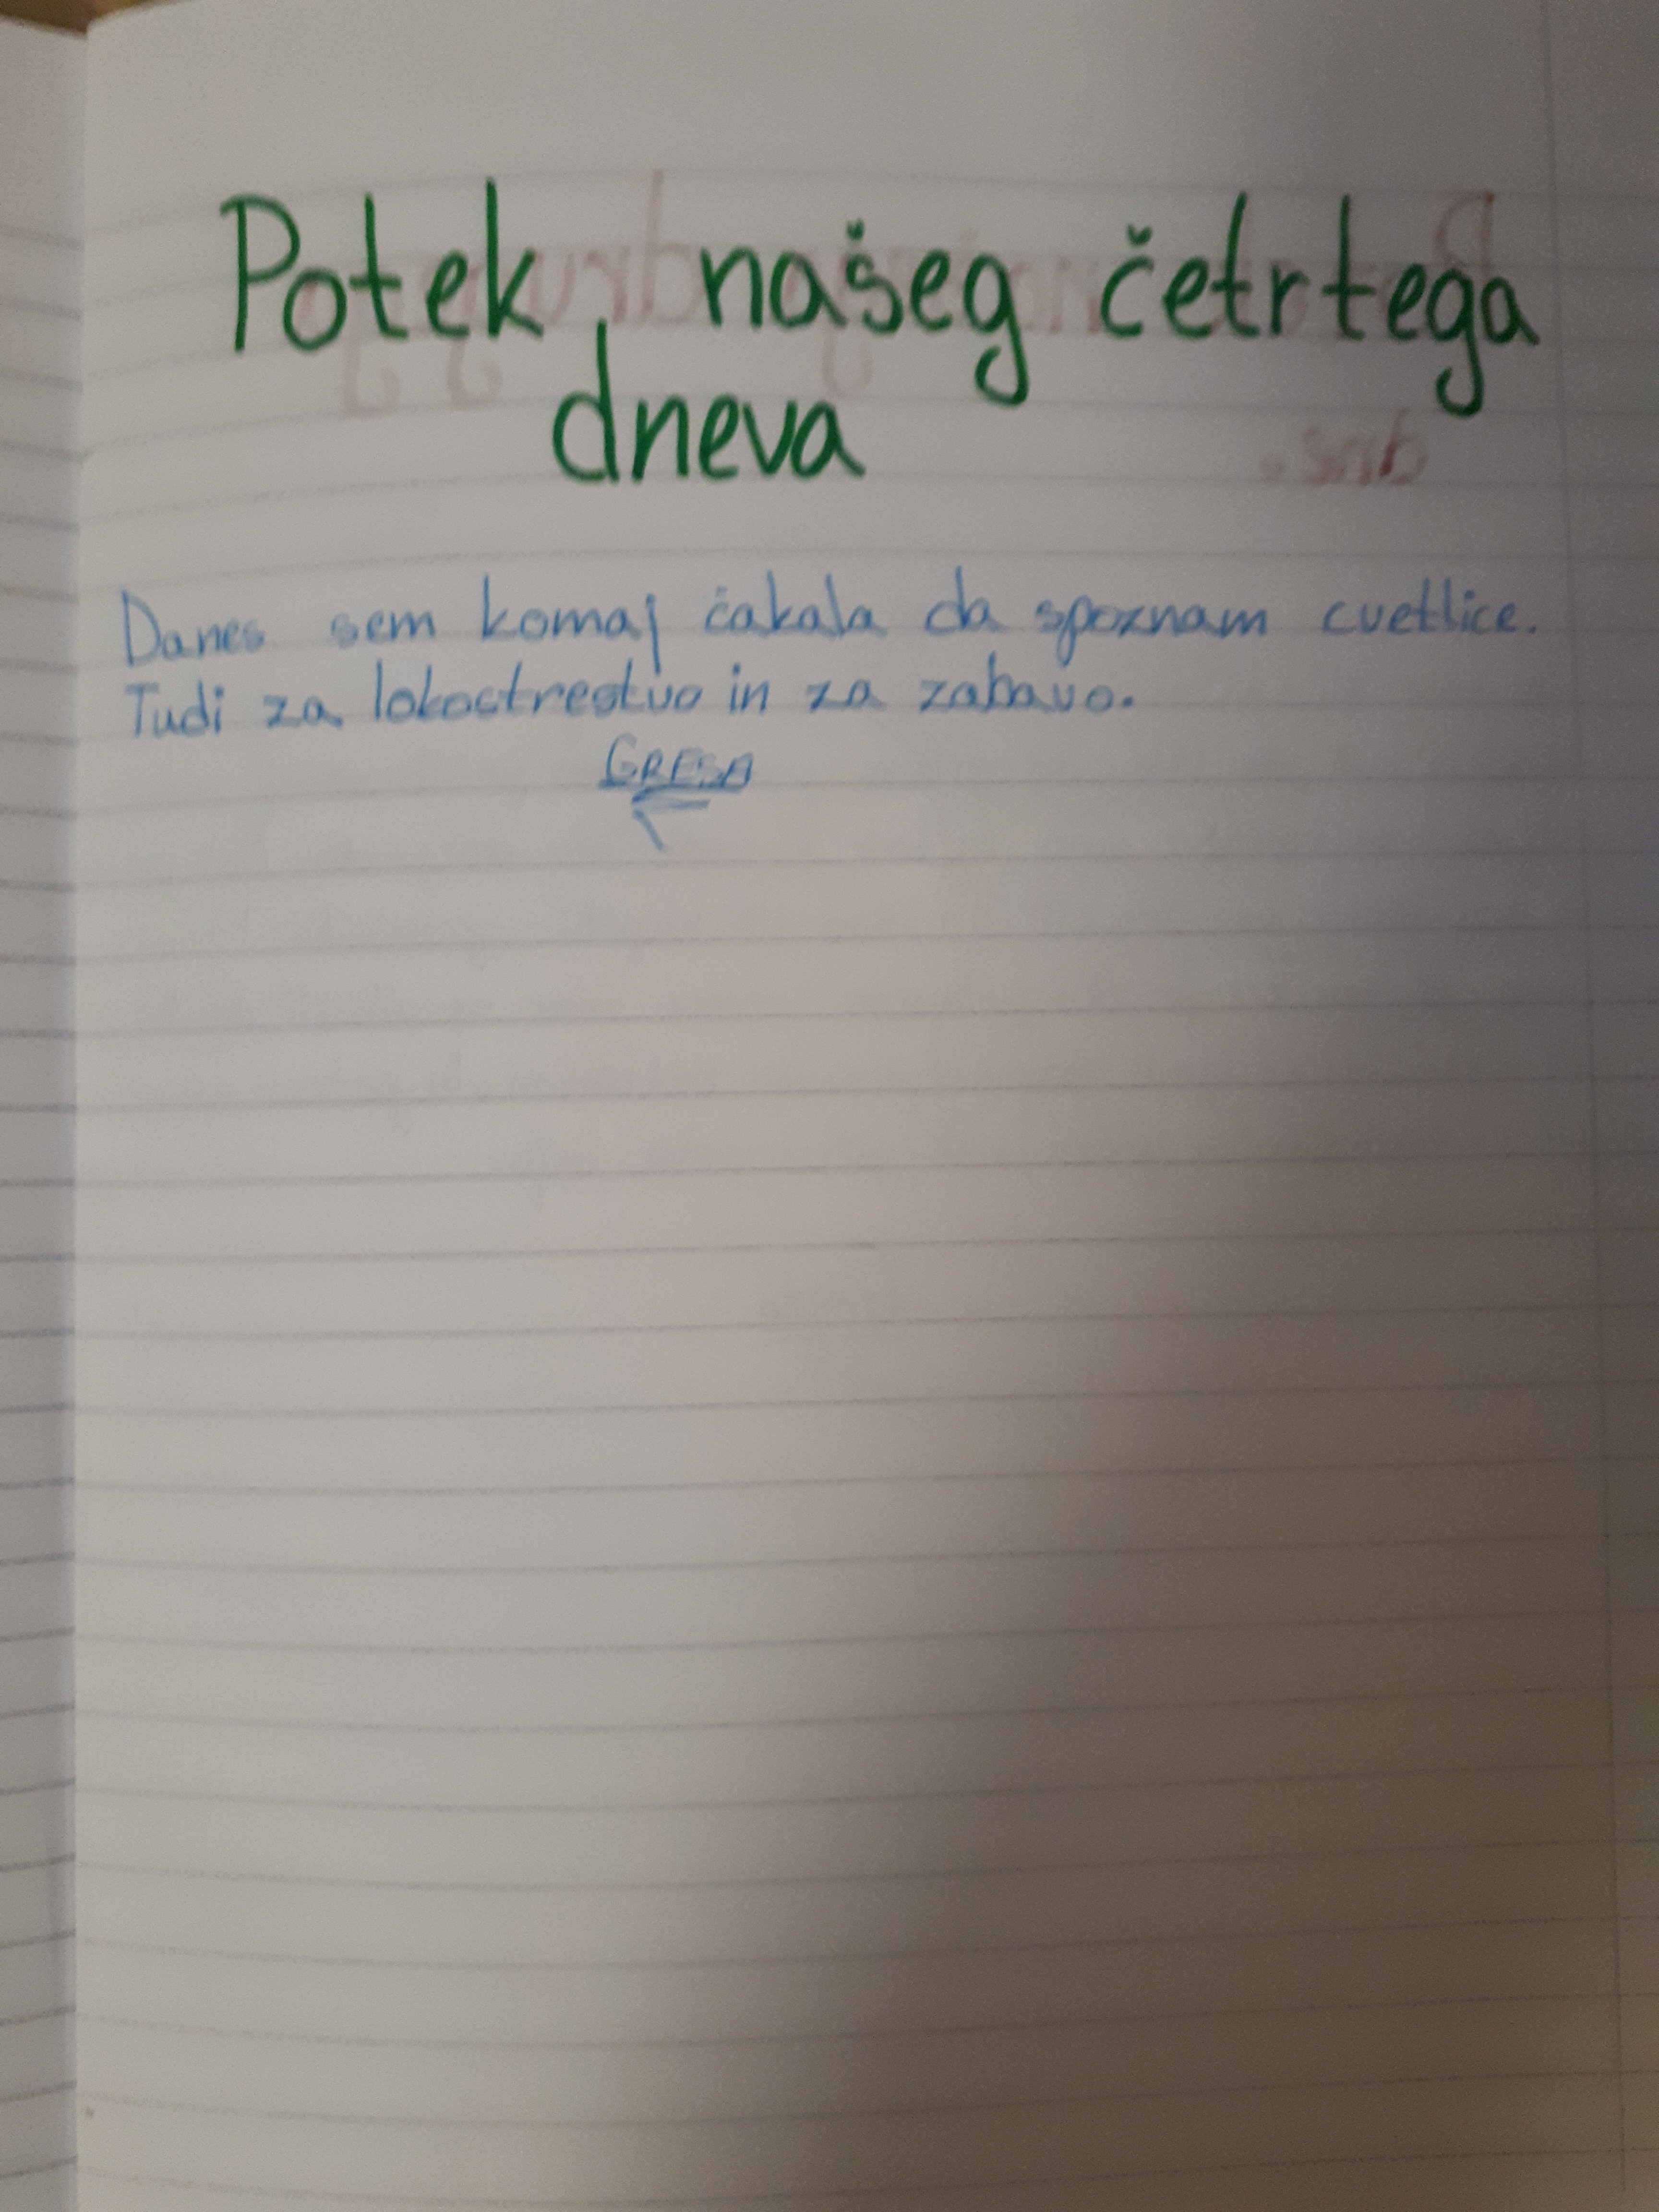 Potek našeg četrtega
dneva
Danes sem komaj čakala da spoznam cvetlice.
Tudi za lokostrestvo in za zabavo.
GRESA